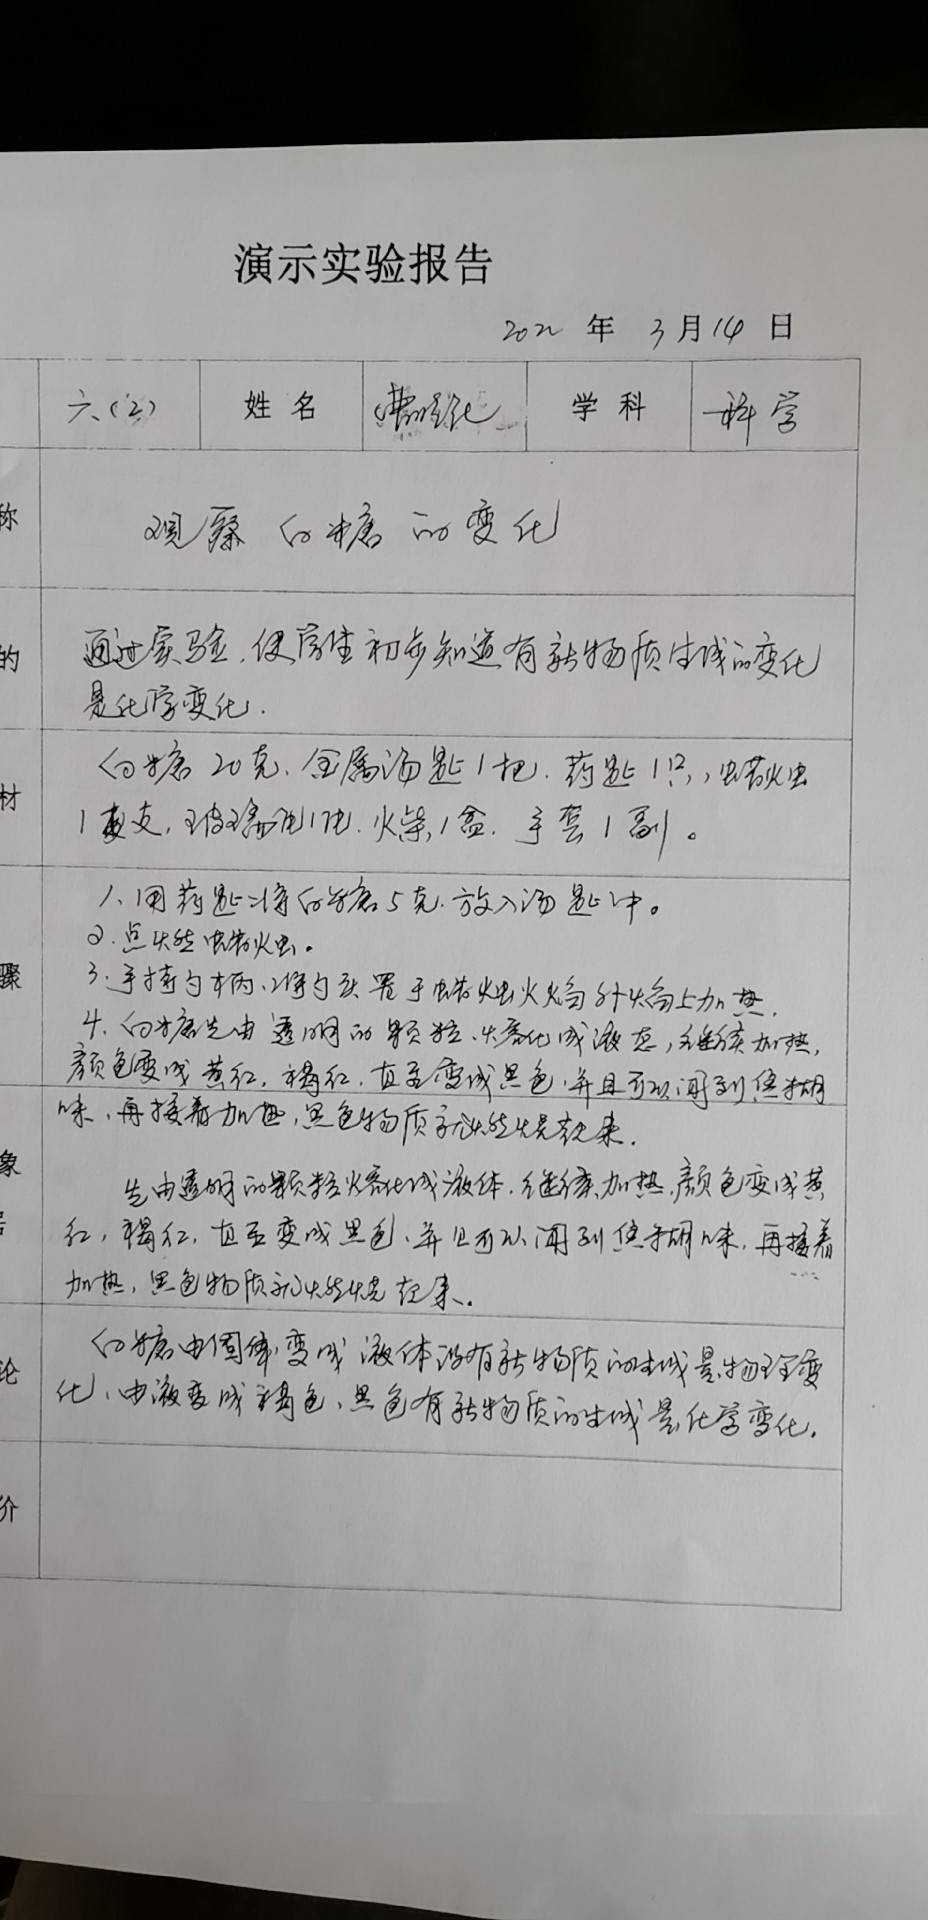 演示实验报告
2022 年 3月14 日
六(2) 姓 名 学 科 科学
称 观察白糖的变化
的 通过实验,使学生初步知道有新物质生成的变化
是化学变化.
白糖20克、金属汤匙1把、药匙1只,蜡烛
材 1支,玻璃皿1只、火柴1盒、手套1副。
1、用药匙将白糖5克放入汤匙中。
2.点燃蜡烛。
骤 3.手持勺柄、将勺头置于蜡烛火焰外焰上加热.
4.白糖先由透明的颗粒、熔化成液态,继续加热,
颜色变成黄红,褐红,直至变成黑色,并且可以闻到焦糊
味、再接着加热,黑色物质就燃烧起来.
象 先由透明的颗粒熔化成液体,继续加热,颜色变成黄
红,褐红,直至变成黑色、并且可以闻到焦糊味,再接着
加热,黑色物质就燃烧起来.
白糖由固体变成液体没有新物质的生成是物理变
论 化、由液变成褐色、黑色有新物质的生成是化学变化.
价